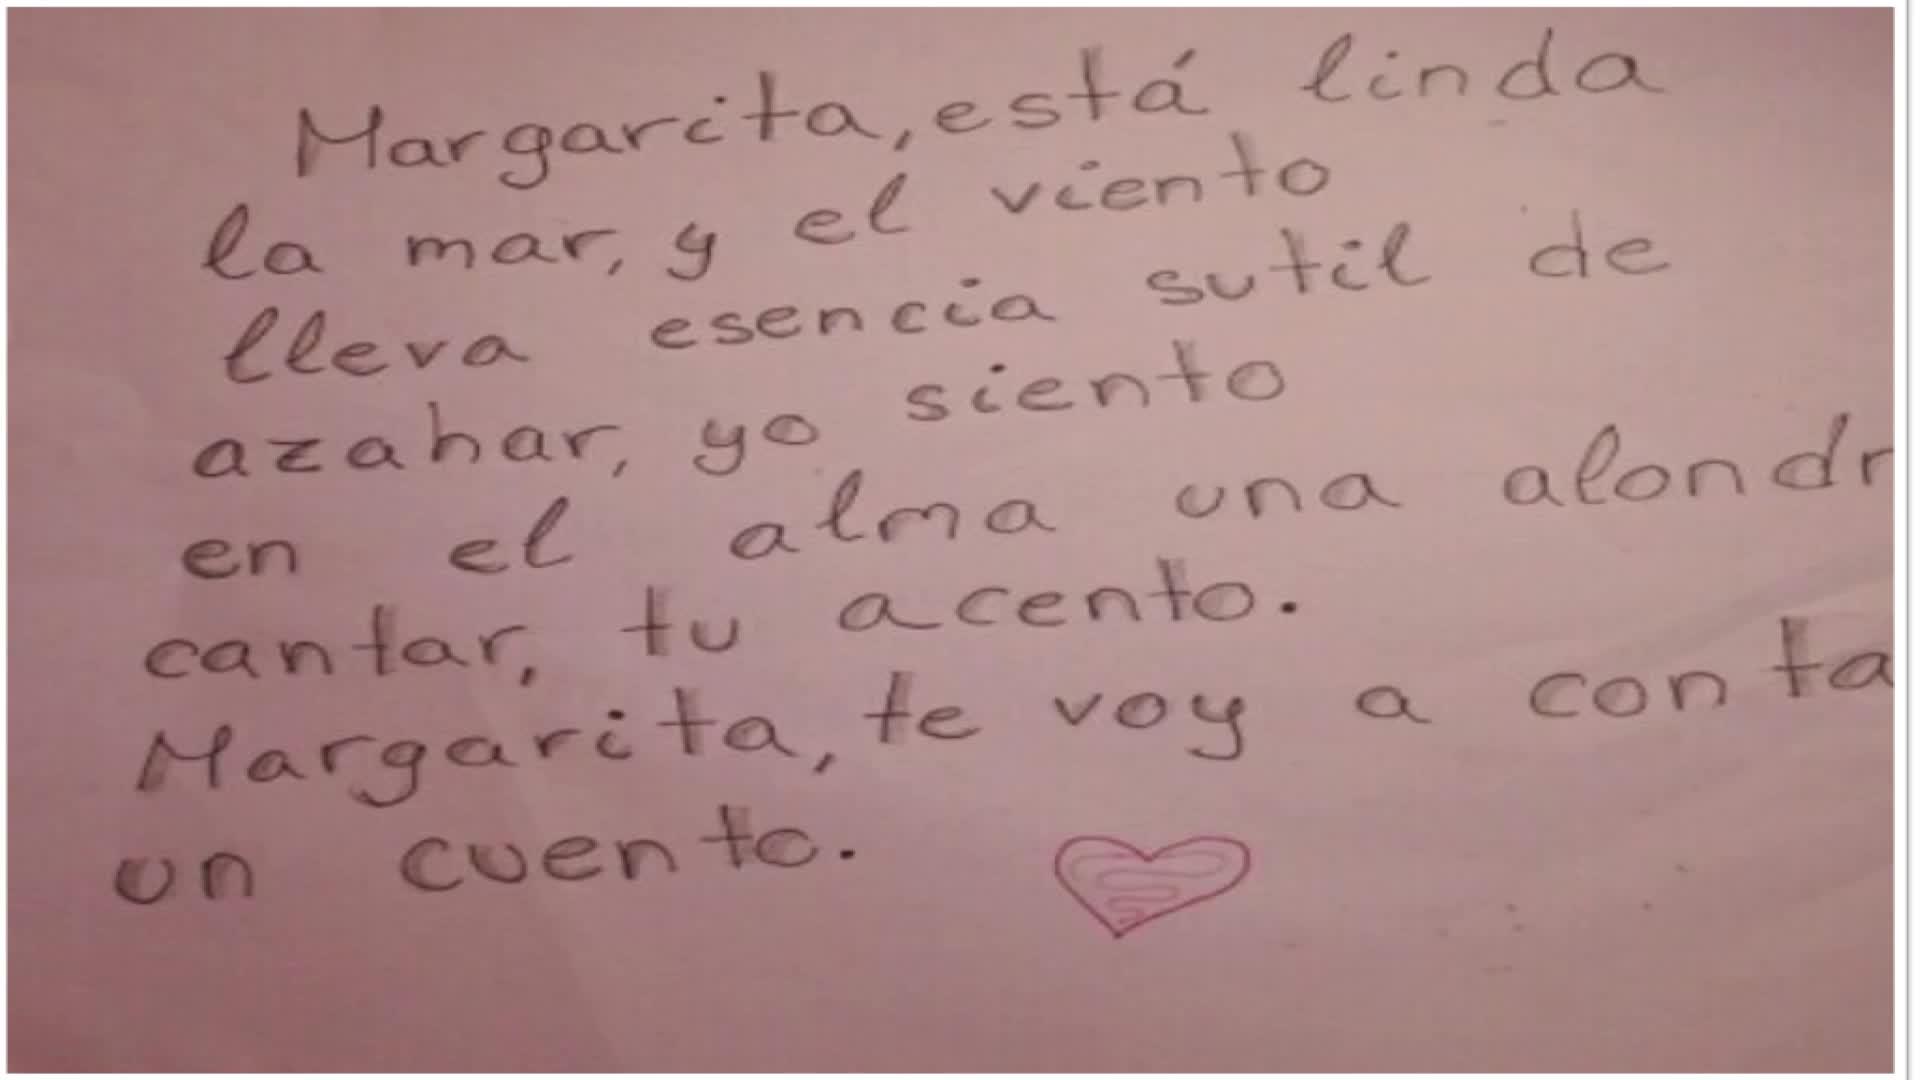 Margarita, está linda
la mar, y el viento
lleva esencia sutil de
azahar, yo siento
en el alma una alondr
cantar, tu acento.
Margarita, te voy a conta
un cuento.